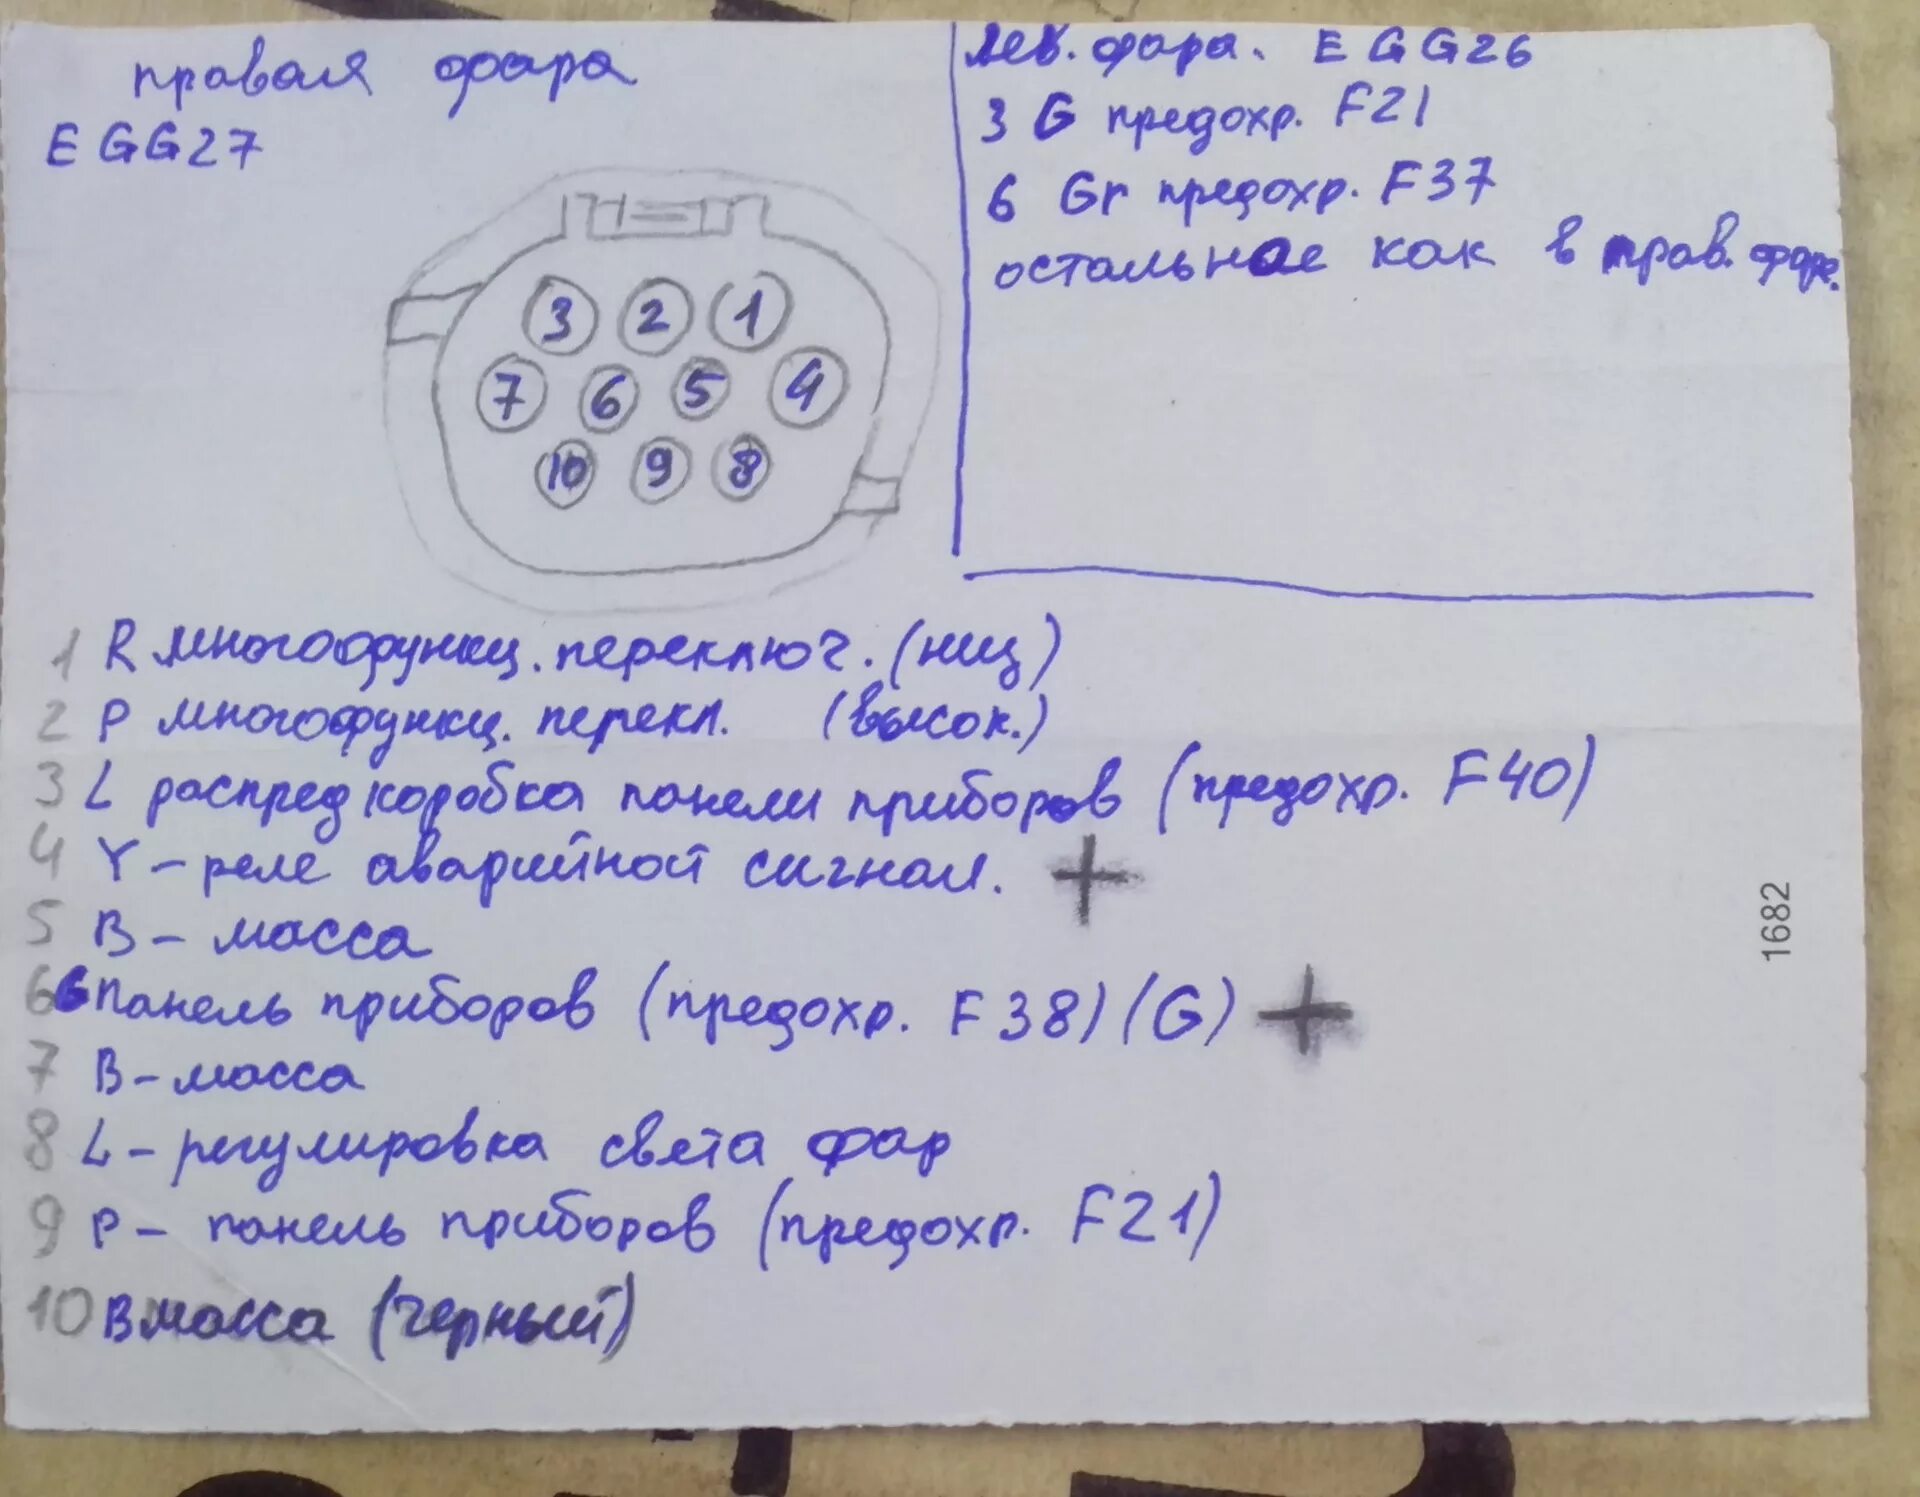 правая фара
EGG27
3 2 1
7 6 5 4
10 9 8
Лев. фара. EGG26
3 G предохр. F21
6 Gr предохр. F37
остальное как в прав. фаре.
1 R многофункц. переключ. (низ)
2 P многофункц. перекл. (высок.)
3 L распред коробка панели приборов (предохр. F40)
4 Y – реле аварийной сигнал. +
5 B – масса
6 G панель приборов (предохр. F38) (G) +
7 B – масса
8 L – регулировка света фар
9 P – панель приборов (предохр. F21)
10 B масса (черный)
1682